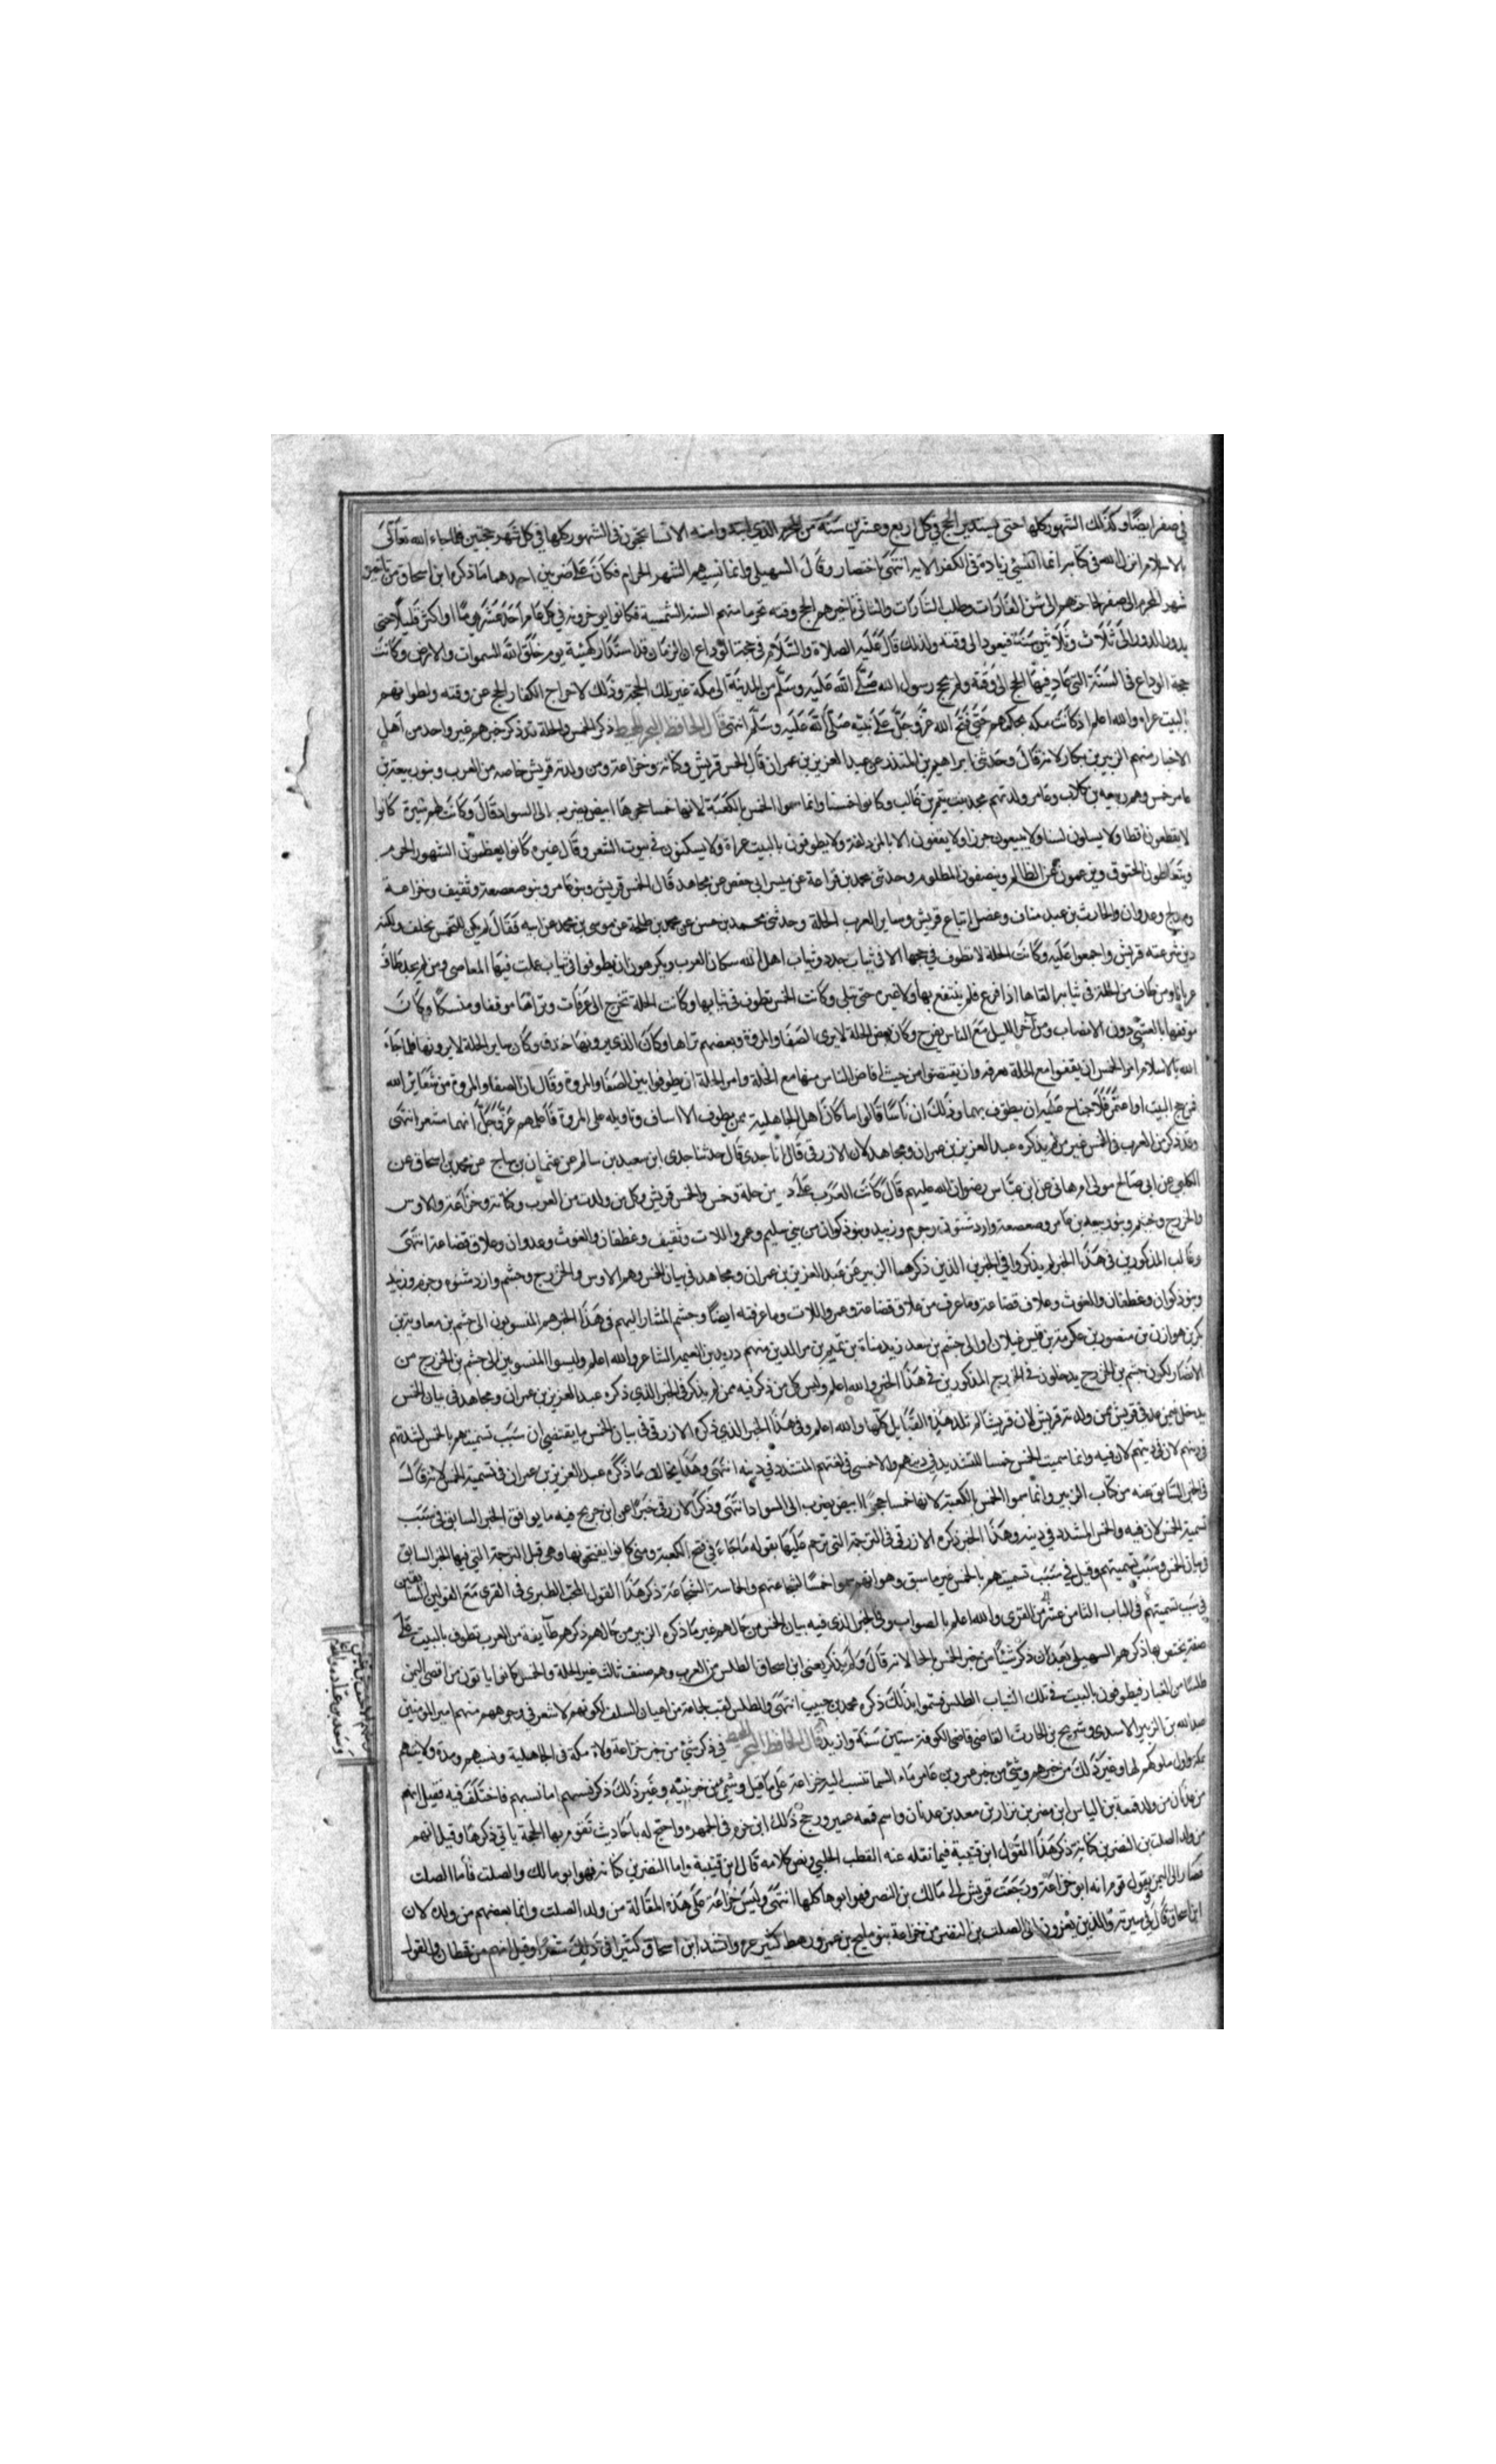 في صفر ايضًا وكذلك الشهور كلها حتى يستدير الحج في كل اربع وعشرين سَنَة من المحرم الذي ابتدوا منه الانسا يحجون في الشهور كلها في كل شهر حجتين فلما جاء الله تعالى
بالاسلام انزل الله في كتابه انما النسئ زيادة في الكفر الايه انتهى باختصار وقال السهيلي وانما نسيهم الشهر الحرام فكان على ضربين احدهما ما ذكره ابن اسحاق من تاخير
شهر المحرم الى صفر لحاجتهم الى شن الغارات وطلب الثارات والثاني تاخيرهم الحج وقته تحريا منهم السنه الشمسية فكانوا يوخرونه في كل عام احد عشر يومًا او اكثر قليلًا حتى
يدور الدور الى ثلاث وثلاثين سنة فيعود الى وقته ولذلك قال عليه الصلاة والسلام في حجة الوداع ان الزمان قد استدار كهيئته يوم خلق الله السموات والارض وكانت
حجة الوداع في السنة التي عاد فيها الحج الى وقته ولم يحج رسول الله صلى الله عليه وسلم من المدينة الى مكة غير تلك الحجة وذلك لاخراج الكفار الحج عن وقته ولطوافهم
بالبيت عراه والله اعلم اذ كانت مكة بحكمهم حتى فتح الله عز وجل على نبيه صلى الله عليه وسلم انتهى قال الحافظ ذكر الحمس والحلة قد ذكر خبرهم غير واحد من اهل
الاخبار منهم الزبير بن بكار لانه قال وحدثني ابراهيم بن المنذر عن عبد العزيز بن عمران قال الحمس قريش وكنانه وخزاعة ومن ولدته قريش خاصه من العرب وبنو ربيعة بن
عامر حمس وهم ربيعه بن كلاب وعامر ولدتهم مجد بنت تيم بن غالب وكانوا حمسا وانما سموا الحمس بالكعبة لانها حمسا حجرها ابيض يضرب الى السواد قال وكانت لهم سيرة كانوا
لا يقطعون اقطا ولا يسلون لسنا ولا يبيعون جزا ولا يقفون الا بالمزدلفة ولا يطوفون بالبيت عراة ولا يسكنون في بيوت الشعر وقال غيره كانوا يعظمون الشهور الحرم
ويتعاطون الحقوق ويزعمون عن الظالم وينصفون المظلوم وحدثني محمد بن فزاعة عن ميسر ابي حفص عن مجاهد قال الحمس قريش وبنو عامر وبنو صعصعة وثقيف وخزاعة
ومدلج وعدوان والحارث بن عبد مناف وعضل اتباع قريش وساير العرب الحلة وحدثني محمد بن حسن عن محمد بن طلحة عن موسى بن محمد عن ابيه فقال لم يكن التحمس بحلف ولكنه
دين شرعته قريش واجمعوا عليه وكانت الحلة لا تطوف في حجها الا في ثياب جدد وثياب اهل الله سكان الحرم ويكرهون ان يطوفوا في ثياب عملت فيها المعاصي ومن لم يجد طاف
عريانا ومن طاف من الحلة في ثيابه القاها اذا فرغ فلم ينتفع بها ولا غيره حتى تبلى وكانت الحمس تطوف في ثيابها وكانت الحلة تخرج الى عرفات وتراها موقفا ومنسكا وكان
موقفها بالعشي دون الانصاب ومن آخر الليل مع الناس بقزح وكان بعض الحلة لا يرى الصفا والمروة وبعضهم تراها وكان الذي يرونها خندق وكان ساير الحلة لا يرونها فلما جاء
الله بالاسلام امر الحمس ان يقفوا مع الحلة بعرفه وان يفيضوا من حيث افاض الناس منها مع الحلة وامر الحلة ان يطوفوا بين الصفا والمروة وقال ان الصفا والمروة من شعاير الله
فمن حج البيت او اعتمر فلا جناح عليه ان يطوف بهما وذلك ان ناسًا قالوا ما كان اهل الجاهلية ممن يطوف الا اساف ونايله على المروة فاعلمهم عز وجل انهما مشعر انتهى
وقد ذكر من العرب في الحمس غير من لم يذكره عبد العزيز بن عمران ومجاهد لان الازرقي قال انا جدي قال حدثنا جدي ابن سعيد بن سالم عن عثمان بن ساج عن محمد بن اسحاق عن
الكلبي عن ابي صالح مولى ام هاني عن ابن عباس رضوان الله عليهم قال كانت العرب على دين حلة وحمس والحمس قريش وكل من ولدت من العرب وكنانه وخزاعة والاوس
والخزرج وخيثم وبنو ربيعه بن عامر وصعصعة وازد شنوة وجرم وزبيد وبنو ذكوان من بني سليم وعمرو اللات وثقيف وغطفان والغوث وعدوان وعلاف وقضاعة انتهى
وغالب المذكورين في هذا الخبر لم يذكروا في الخبرين الذين ذكرهما الزبير عن عبد العزيز بن عمران ومجاهد في بيان الحمس وهم الاوس والخزرج وجشم وازد شنوه وجرم وزبيد
وبنو ذكوان وغطفان والغوث وعلاف قضاعة وما عرفت من علاف قضاعة وعمرو اللات وما عرفته ايضًا وجشم المشار اليهم في هذا الخبر هم المنسوبون الى جشم بن معاوية بن
بكر بن هوازن بن منصور بن عكرمة بن قيس غيلان او الى جشم بن سعد زيد مناة بن تميم بن مر الدين منهم دريد بن الصمة الشاعر والله اعلم وليسوا المنسوبين الى جشم بن الخزرج من
الانصار لكون جشم بن الخزرج يدخلون في الخزرج المذكورين في هذا الخبر والله اعلم وليس كل من ذكر فيه ممن لم يذكر في الخبر الذي ذكره عبد العزيز بن عمران ومجاهد في بيان الحمس
يدخل فيمن عد في قريش ممن ولدته قريش لان قريشا لم تلد هذه القبايل كلها والله اعلم وفي هذا الخبر الذي ذكره الازرقي في بيان الحمس ما يقتضي ان سبب تسميتهم بالحمس لشدتهم
في دينهم لان فيه وانما سميت الحمس حمسا للتشديد في دينهم والاحمس في لغتهم المتشدد في دينه انتهى وهذا يخالف ما ذكره عبد العزيز بن عمران في تسمية الحمس لانه قال
في الخبر السابق عنه من كتاب الزبير وانما سموا الحمس بالكعبة لانها حمسا حجرها ابيض يضرب الى السواد انتهى وذكر الازرقي خبرًا عن ابن جريج فيه ما يوافق الخبر السابق في سبب
تسمية الحمس لان فيه والحمس المشدد في دينه وهذا الخبر ذكره الازرقي في الترجمة التي ترجم عليها بقوله ما جاء في فتح الكعبة ومتى كانوا يفتحونها وهي قبل الترجمة التي فيها الخبر السابق
في بيان الحمس وسبب تسميتهم وقيل في سبب تسميتهم بالحمس غير ما سبق وهو انهم سموا حمسًا لشجاعتهم والحماسة الشجاعة ذكر هذا القول المحب الطبري في القرى مع القولين السابقين
في سبب تسميتهم في الباب الثامن عشر من القرى والله اعلم بالصواب وفي الخبر الذي فيه بيان الحمس من حالهم غير ما ذكره الزبير من حالهم ذكرهم طايفة من العرب تطوف بالبيت على
صفة تختص بها ذكرهم السهيلي بعد ان ذكر شيئًا من خبر الحمس والحلة لانه قال ولم يذكر يعني ابن اسحاق الطلس من العرب وهم صنف ثالث غير الحلة والحمس كانوا ياتون من اقصى اليمن
طلسًا من الغبار فيطوفون بالبيت في تلك الثياب الطلس فسموا بذلك ذكره محمد بن حبيب انتهى والطلس لقب لجماعة من اعيان السلف لكونهم لا شعر في وجوههم منهم امير المومنين
عبد الله بن الزبير الاسدي وشريح بن الحارث القاضي قاضي الكوفة ستين سنة وازيد قال الحافظ في ذكر شئ من خبر خزاعة ولاة مكة في الجاهلية ونسبهم ومدة ولايتهم
بمكة واول ملوكهم لها وغير ذلك من خبرهم وشئ من خبر عمرو بن عامر ماء السما تنسب اليه خزاعة على ما قيل وشئ من خبر بنيه وغير ذلك ذكر نسبهم اما نسبهم فاختلف فيه فقيل انهم
من عدنان من ولد قمعة بن الياس ابن مضر بن نزار بن معد بن عدنان واسم قمعه عمير ورجح ذلك ابن حزم في الجمهره واحتج له باحاديث تقوم بها الحجة ياتي ذكرها وقيل انهم
من ولد الصلت بن النضر بن كنانة ذكر هذا القول ابن قتيبة فيما نقله عنه القطب الحلبي ونص كلامه قال ابن قتيبة واما النضر بن كنانة فهو ابو مالك والصلت فاما الصلت
فصار الى اليمن يقول قوم انه ابو خزاعة ورجعت قريش الى مالك بن النضر فهو ابوها كلها انتهى وليس خزاعة على هذه المقالة من ولد الصلت وانما بعضهم من ولده لان
ابن اسحاق قال في سيرته والذين يعزون الى الصلت بن النضر من خزاعة بنو مليح بن عمرو رهط كثير عزه وانشد ابن اسحاق كثيرا في ذلك شعرًا وقيل انهم من قحطان والقول